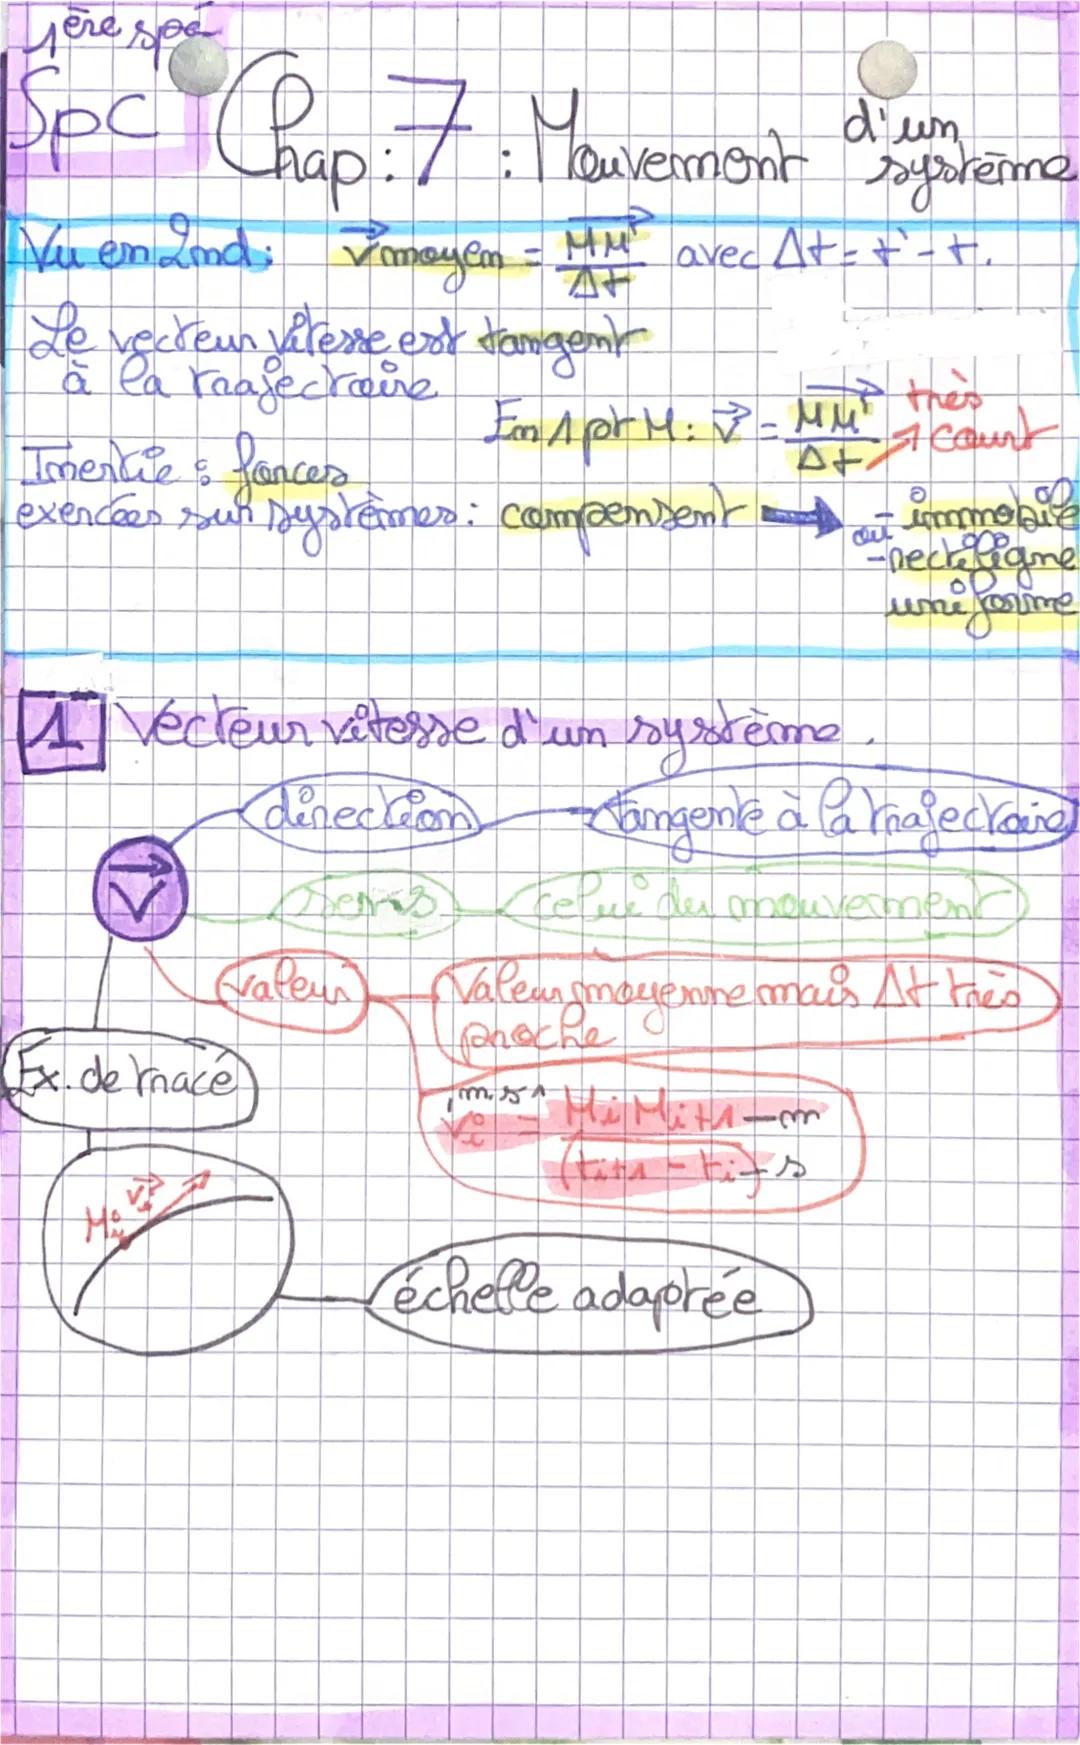 1ère spé
SPC
Chap: 7 : Mouvement d'un système
Vu en 2nd: V moyen = MM' / Δt avec Δt = t' - t.
Le vecteur vitesse est tangent
à la raajectoire
En 1 pt M: V = MM' / Δt très court
Inertie : forces
exercées sur systèmes: compensent → - immobile
ou - rectiligne
uniforme
1 Vecteur vitesse d'un système.
direction tangente à la trajectoire
V
sens celui du mouvement
valeur Valeur moyenne mais Δt très
proche
Ex. de tracé
m.s-1
Vi = MiMi+1 - m
(ti+1 - ti) - s
Mi Vi
échelle adaptée